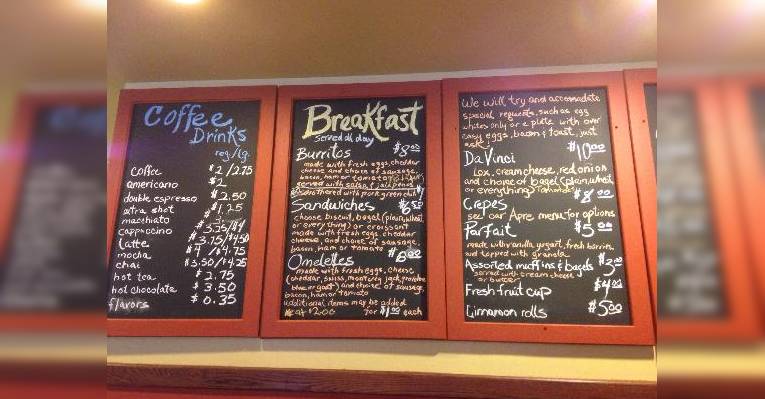 Coffee
Drinks
reg./lg.
Coffee $2/2.75
americano $2
double espresso $2.50
extra shot $1.25
macchiato
cappuccino 3.75/$4
Latte $3.75/$4.50
mocha $4/$4.75
chai $3.50/$4.25
hot tea $2.75
hot chocolate $3.50
flavors $0.35
Breakfast
served all day
Burritos $8.00
made with fresh eggs, cheddar
cheese and choice of sausage,
bacon, ham or tomato
served with salsa & jalapenos
smothered with pork green chili $1
Sandwiches $6.50
choose biscuit, bagel (plain, wheat,
or everything) or croissant
made with fresh eggs, cheddar
cheese, and choice of sausage,
bacon, ham or tomato
Omelettes $8.00
made with fresh eggs, cheese
(cheddar, swiss, monterey jack,
blue or goat) and choice of sausage,
bacon, ham or tomato
additional items may be added
for $1.00 each
meat $2.00
We will try and accomodate
special requests, such as egg
whites only or a plate with over
easy eggs, bacon & toast, just
ask!
Da Vinci $10.00
Lox, cream cheese, red onion
and choice of bagel (plain, wheat,
or everything)
Crepes $8.00
see our Apre menu for options
Parfait $5.00
made with vanilla yogurt, fresh berries
and topped with granola
Assorted muffins & bagels $3.00
served with cream cheese
or butter
Fresh fruit cup $4.00
Cinnamon rolls $5.00